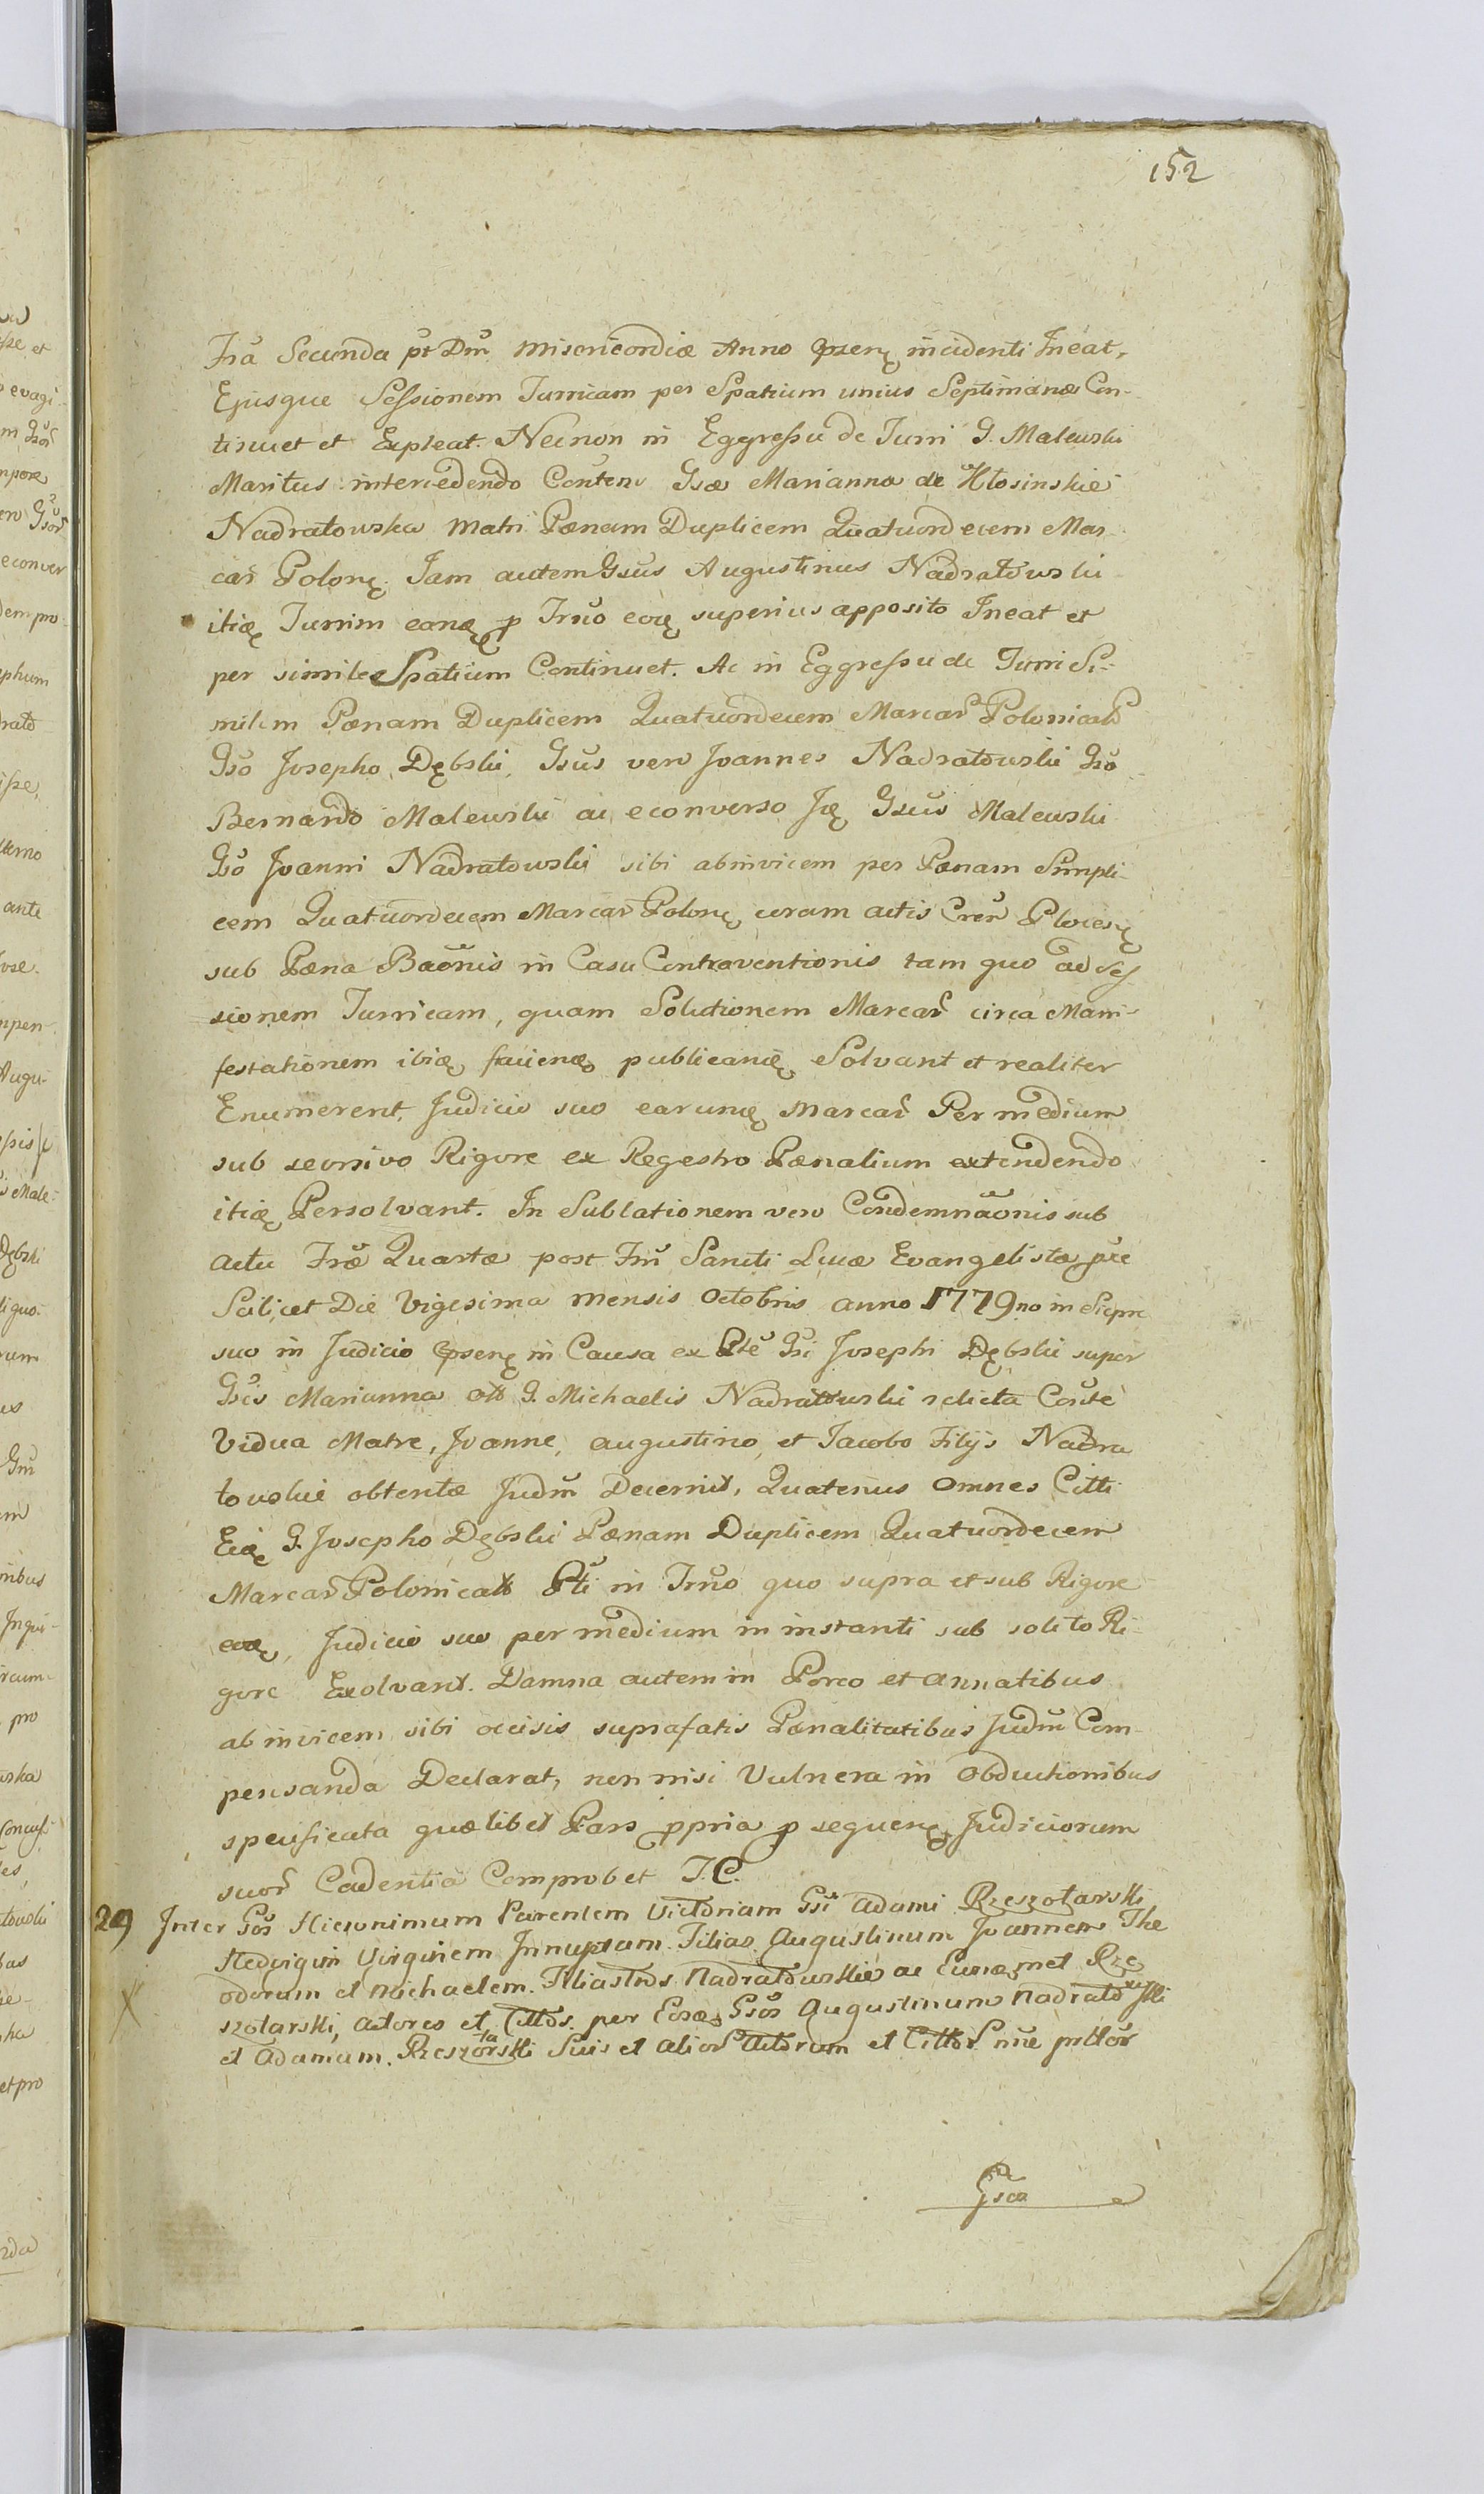 152
Fra Secunda pt Dm Misericordiæ Anno Prænꝫ incidenti Ineat,
Ejusque Sessionem Turricam per Spatium unius Septimanæ Con-
tinuet et Expleat. Necnon in Eggressu de Turri G. Malewski
Maritus intercedendo Contens Gsæ Marianna de Kłosinskie
Nadratowska Matri Pænam Duplicem Quatuordecem Mar-
car Polonꝫ. Jam autem Gsus Augustinus Nadratowski
itiꝫ Turrim eanꝫ p Trno eoꝫ superius apposito Ineat et
per simile Spatium Continuet. Ac in Eggressu de Turri Si-
milem Pænam Duplicem Quatuordecem Marcar Polonical
Gso Josepho Dębski, Gsus vero Joannes Nadratowski Gso
Bernardo Malewski ac econverso Iꝫ Gsus Malewski
Gso Joanni Nadratowski sibi abinvicem per Pænam Simpli-
cem Quatuordecem Marcar Polonꝫ coram actis Cren Plocensꝫ
sub Pæna Baonis in Casu Contraventionis tam quo ad Ses
sionem Turricam, quam Solutionem Marcar circa Mani-
festationem ibiꝫ facienꝫ publicanꝫ Solvant et realiter
Enumerent, Judicio suo earumꝫ Marcar Per medium
sub Rigore ex Regestro Pænalium extendendo
itiꝫ Persolvant. In Sublationem vero Condemnaonis sub
actu Fræ Quartæ post Fm Sancti Lucæ Evangelistæ præ
Scilicet Die Vigesima mensis Octobris anno 1779no in Sierpc
suo in Judicio Prænꝫ in Causa ex Pte Gsi Josephi Dębski super
Gsis Marianna olt G. Michaelis Nadratowski relicta Conte
Vidua Matre, Joanne, augustino, et Jacobo Filijs Nadra
towskie obtentæ Judm Decernit, Quatenus Omnes Citti
Eiꝫ G. Josepho Dębski Pænam Duplicem Quatuordecem
Marcar Polonicalt Pti in Trno quo supra et sub Rigore
eoꝫ, Judicio suo per medium in instanti sub solito Ri-
gore Exolvant. Damna autem in Porco et annatibus
ab invicem sibi occisis suprafatis Pænalitatibus Judm Com-
pensanda Declarat, non nisi Vulnera in Obductionibus
specificata quælibet Pars ppria p sequenꝫ Judiciorum
suor Cadentia Comprobet I.C.
29 Inter Gos Hieronimum Parentem Victoriam Gsi Adami Rzeszotarski
Hedvigim Virginem Innuptam Filias Augustinum Joannem The
odorum et Michaelem Filiastros Nadratowskie ac Eumꝫmet Rze
szotarski, actores et Cittos. per Eosꝫ Gsos Augustinum Nadratowski
X et Adamum. Rzeszotarski Suis et alior Actorum et Cittor nne
Gsca